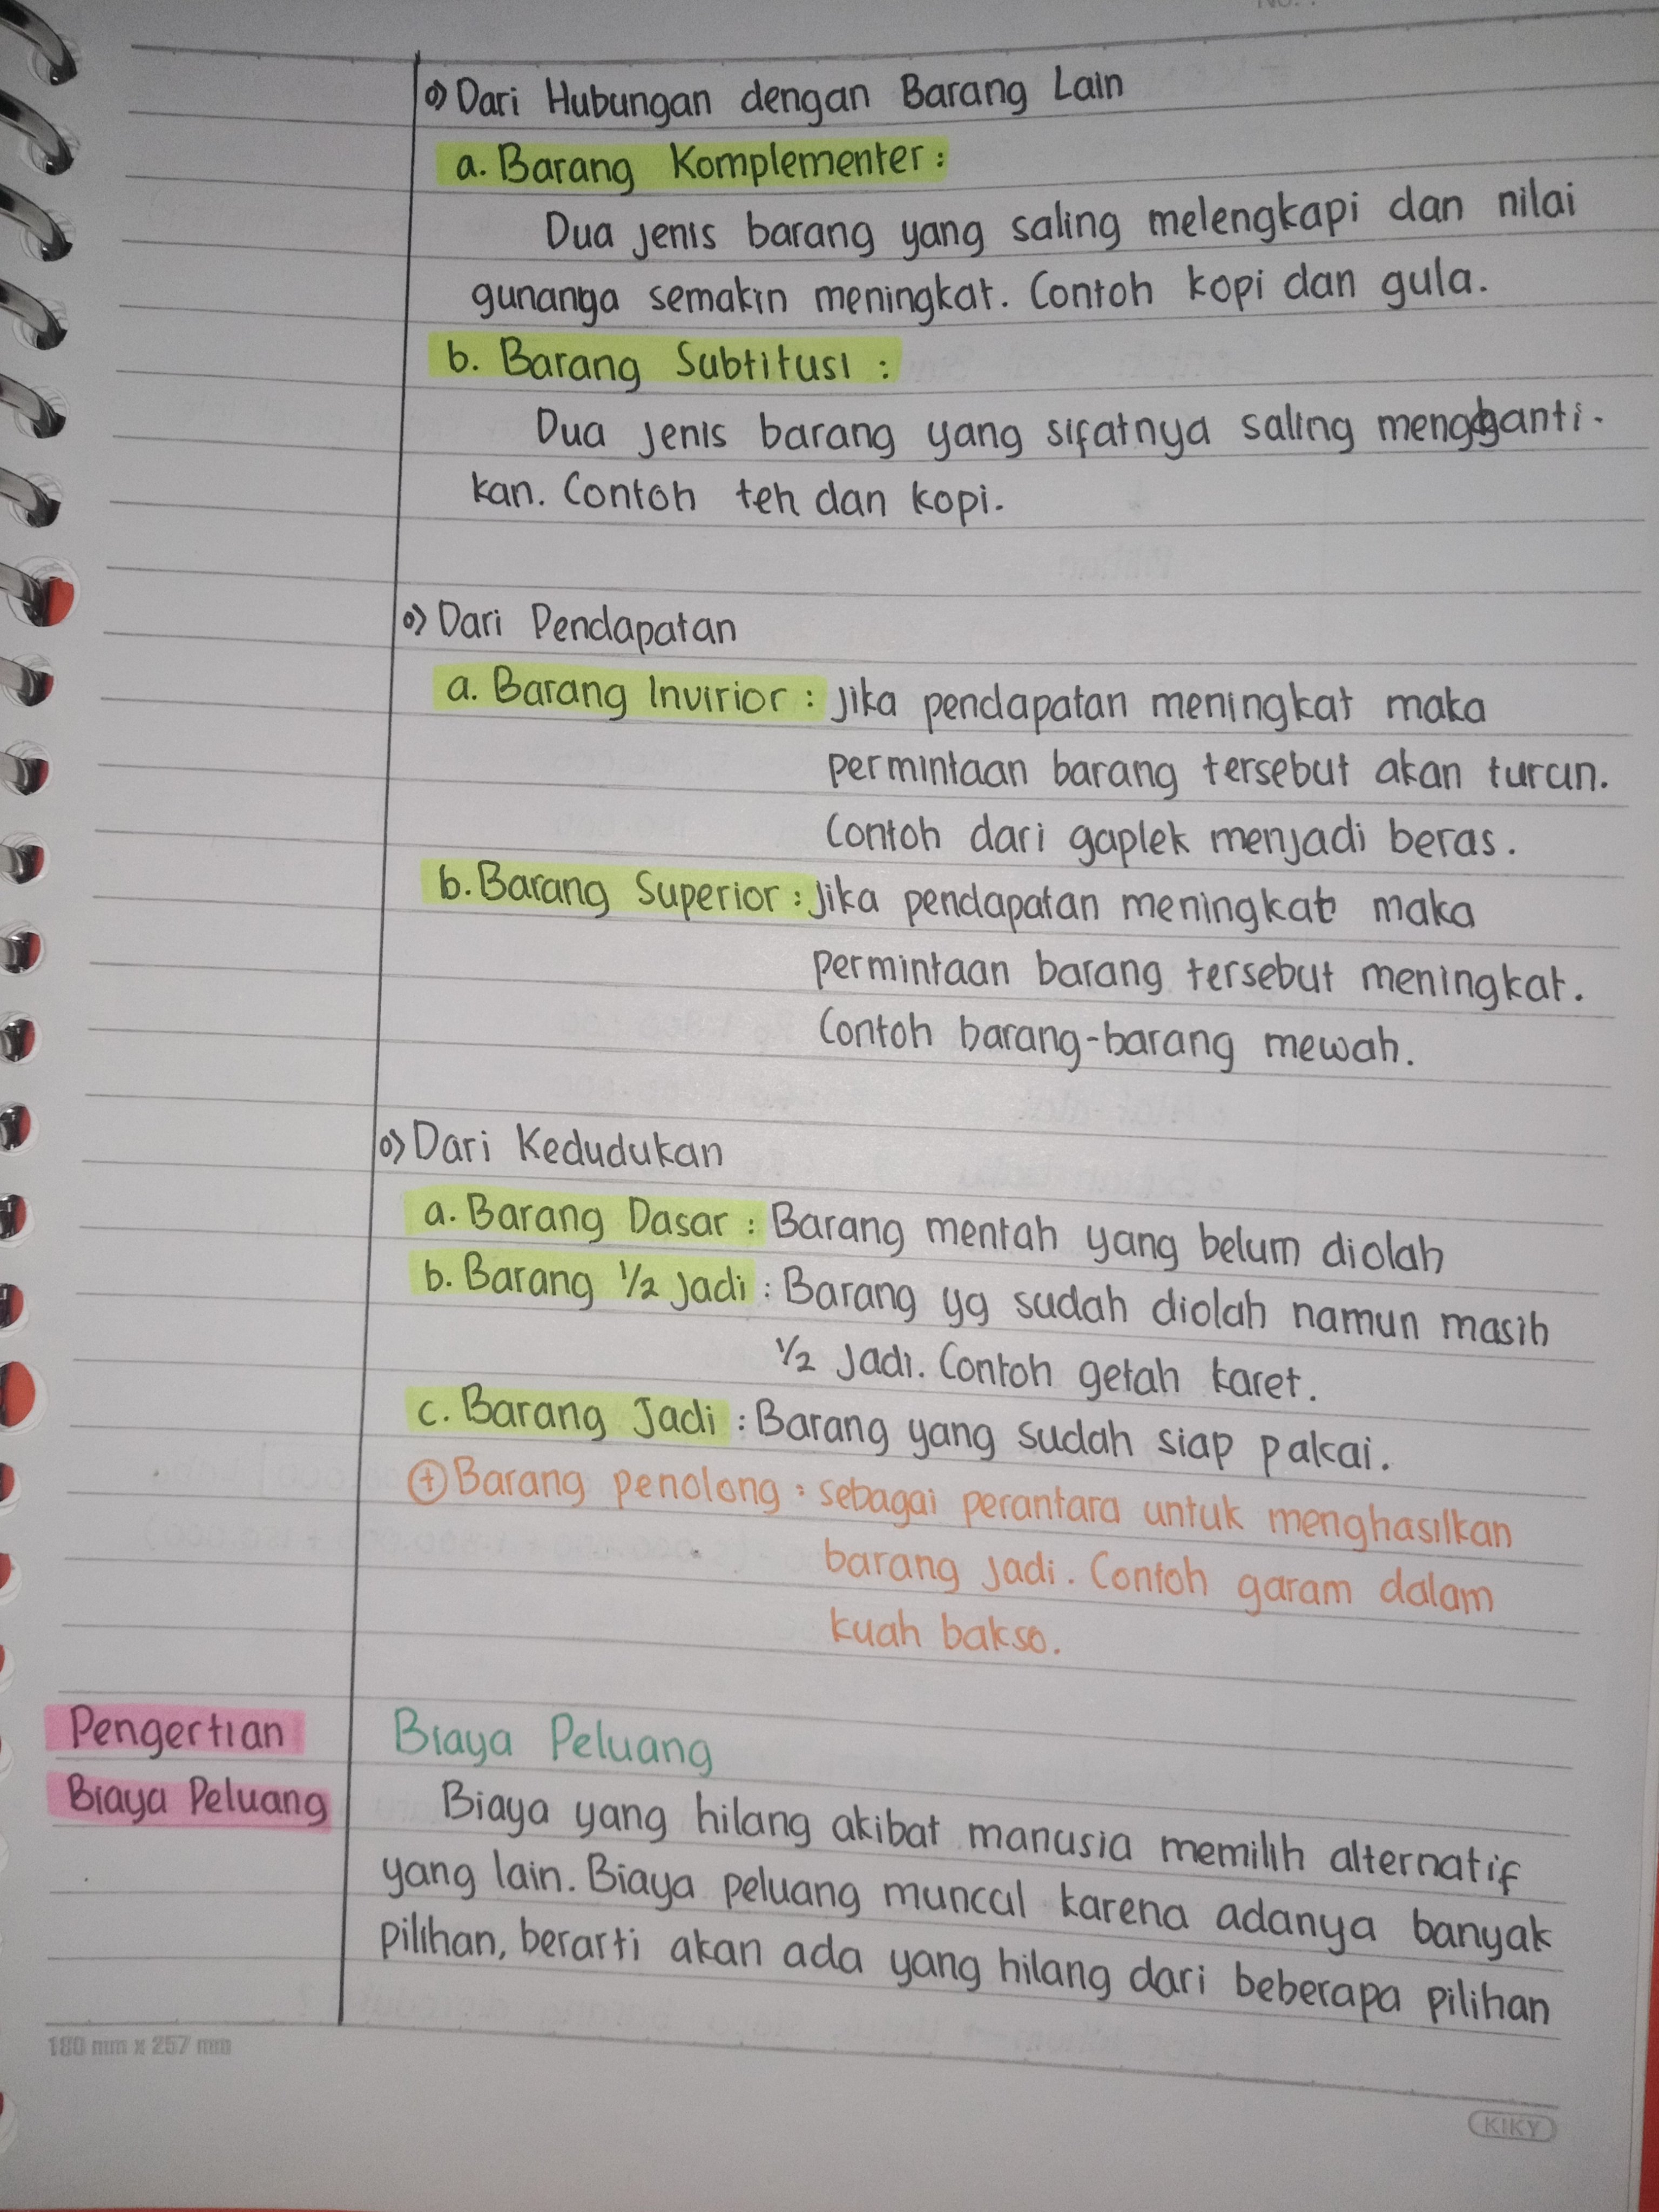 No. :
o) Dari Hubungan dengan Barang Lain
a. Barang Komplementer :
Dua jenis barang yang saling melengkapi dan nilai
gunanya semakin meningkat. Contoh kopi dan gula.
b. Barang Subtitusi :
Dua jenis barang yang sifatnya saling mengganti-
kan. Contoh teh dan kopi.
o) Dari Pendapatan
a. Barang Invirior : Jika pendapatan meningkat maka
permintaan barang tersebut akan turun.
Contoh dari gaplek menjadi beras.
b. Barang Superior : Jika pendapatan meningkat maka
permintaan barang tersebut meningkat.
Contoh barang-barang mewah.
o) Dari Kedudukan
a. Barang Dasar : Barang mentah yang belum diolah
b. Barang 1/2 Jadi : Barang yg sudah diolah namun masih
1/2 Jadi. Contoh getah karet.
c. Barang Jadi : Barang yang sudah siap pakai.
+ Barang penolong : sebagai perantara untuk menghasilkan
barang jadi. Contoh garam dalam
kuah bakso.
Pengertian
Biaya Peluang
Biaya Peluang
Biaya yang hilang akibat manusia memilih alternatif
yang lain. Biaya peluang muncul karena adanya banyak
pilihan, berarti akan ada yang hilang dari beberapa pilihan
180 mm x 257 mm
KIKY